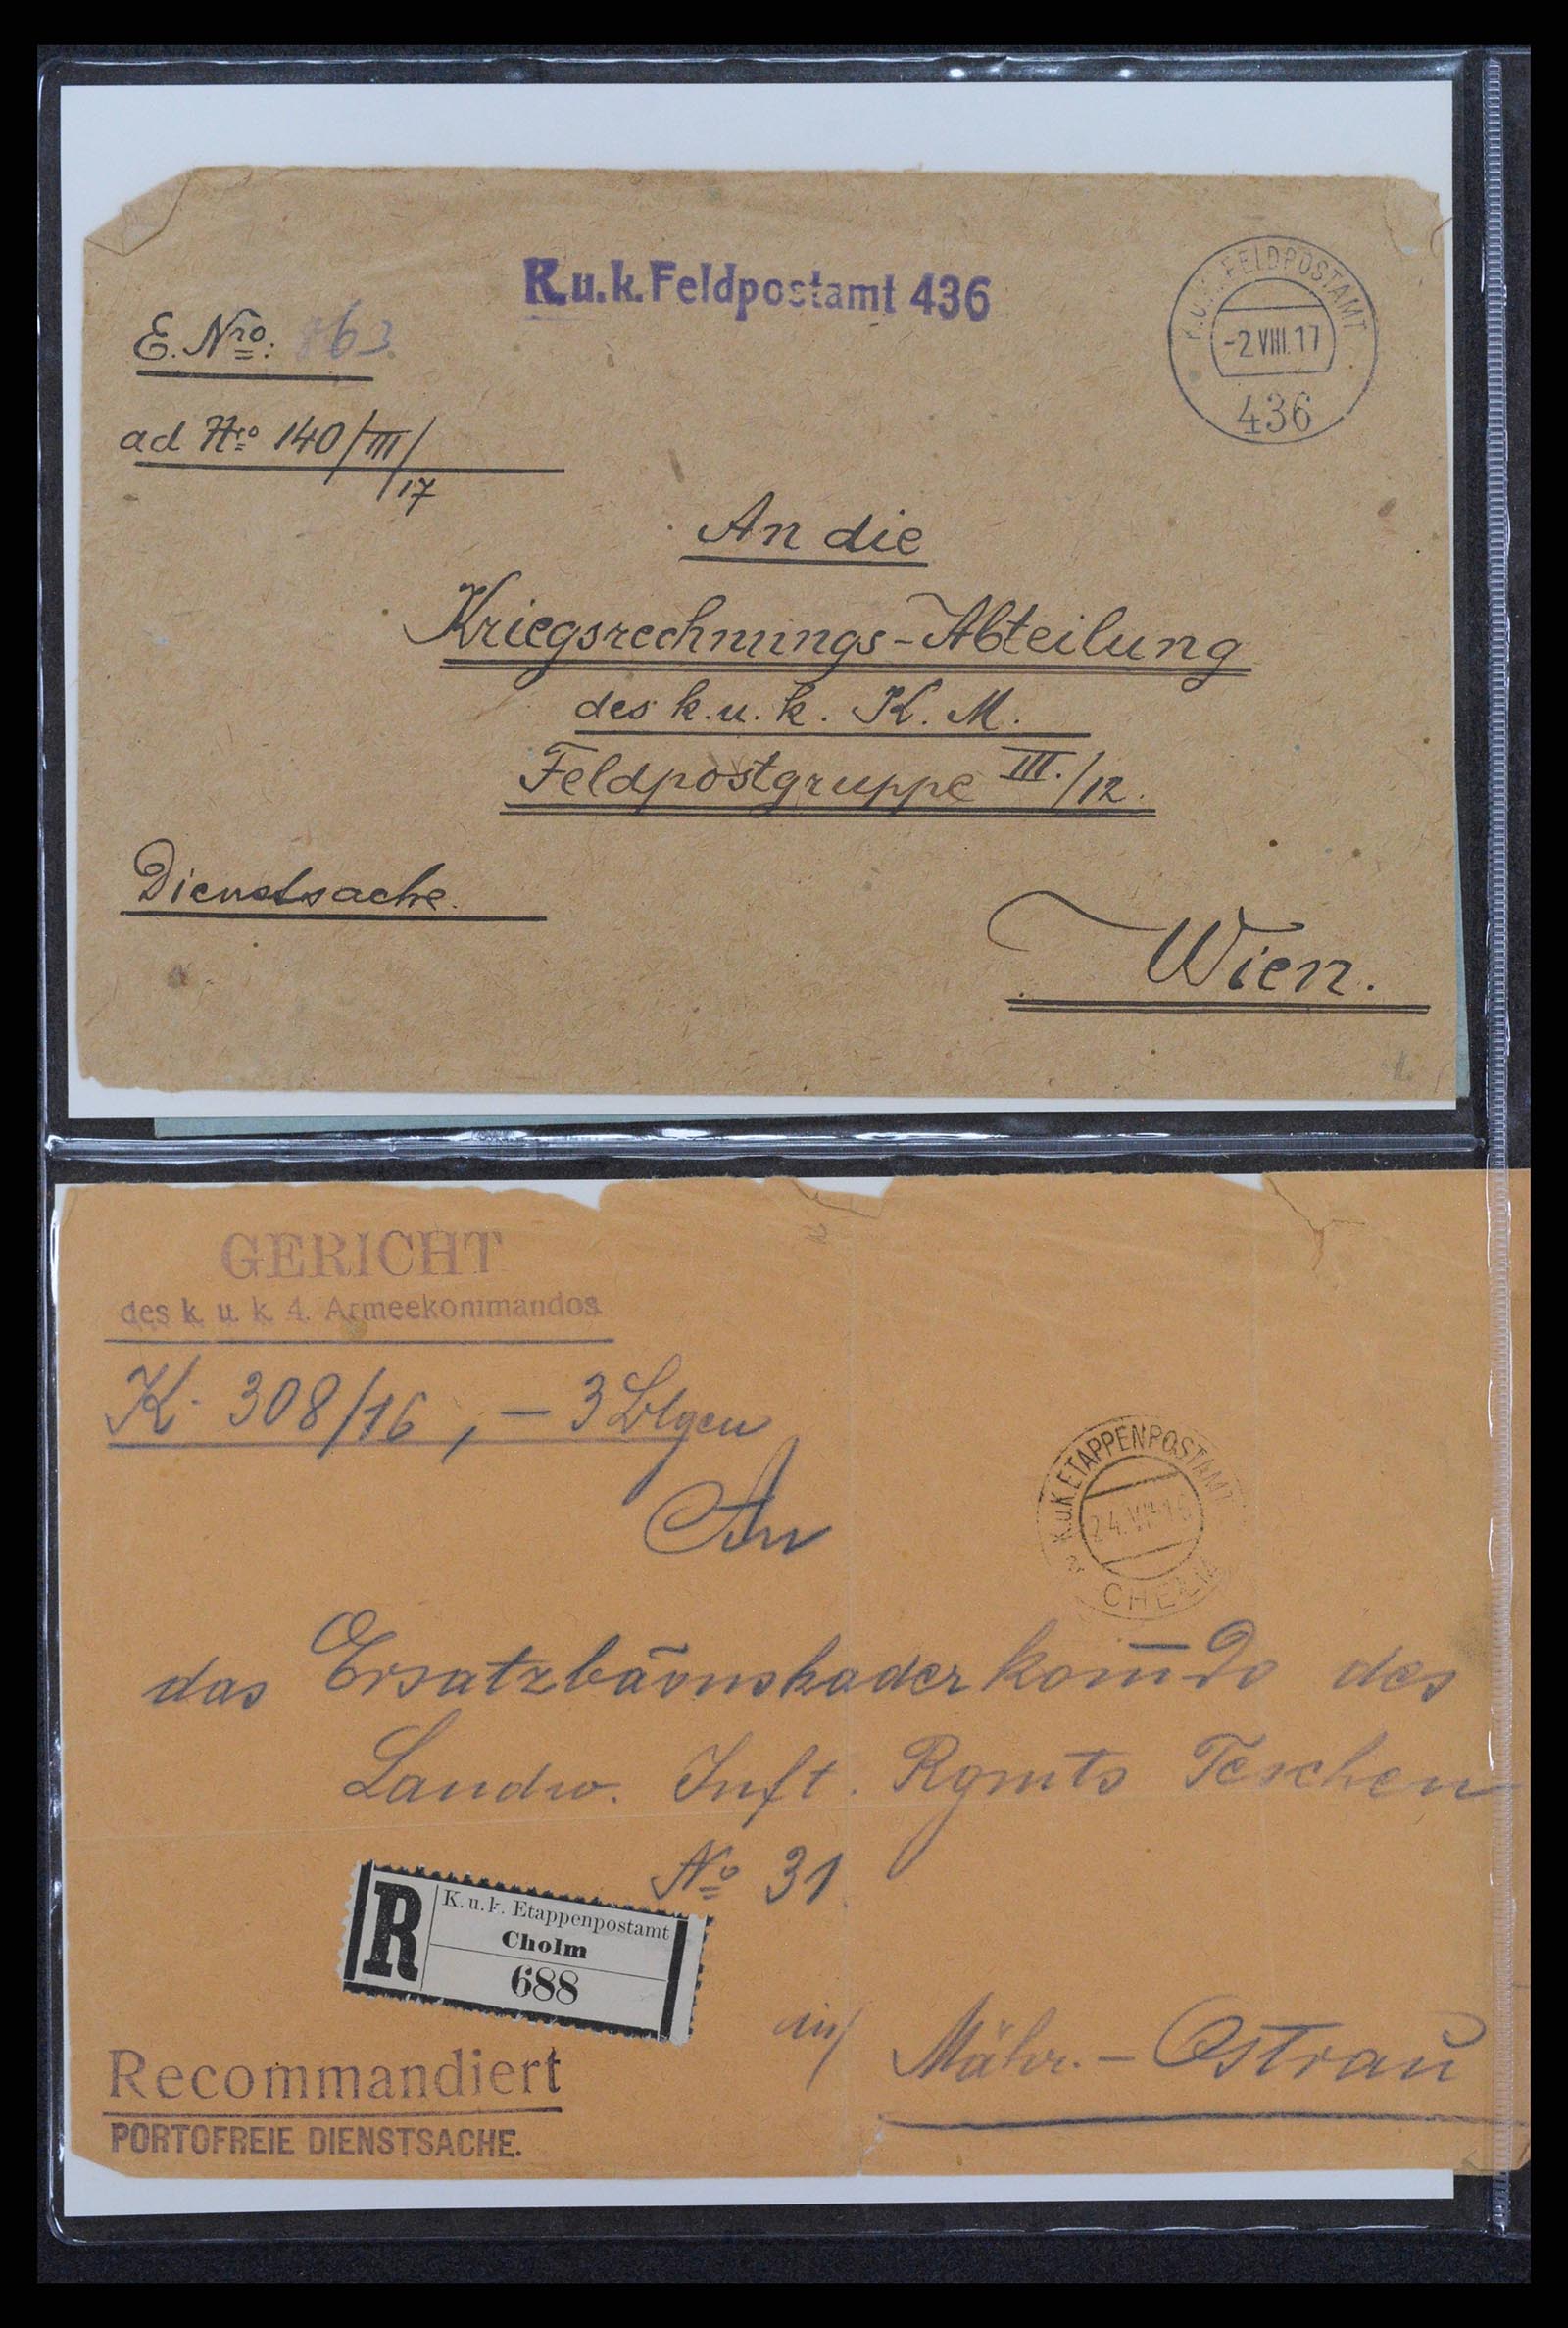 K.u.k. Feldpostamt 436
K.u.K. FELDPOSTAMT
-2 VIII. 17
436
E. Nro: 863
ad Nro 140/III/
17
An die
Kriegsrechnungs-Abteilung
des k.u.k. K.M.
Feldpostgruppe III./12.
Dienstsache.
Wien.
GERICHT
des k. u. k. 4. Armeekommandos
K. 308/16, – 3 Blgen
K.u.K. ETAPPENPOSTAMT
24.VII.16
CHELM
An
das Ersatzbaonskaderkom̄do des
Landw. Inft. Rgmts Teschen
No 31
R
K. u. k. Etappenpostamt
Cholm
688
in/ Mähr.-Ostrau
Recommandiert
PORTOFREIE DIENSTSACHE.